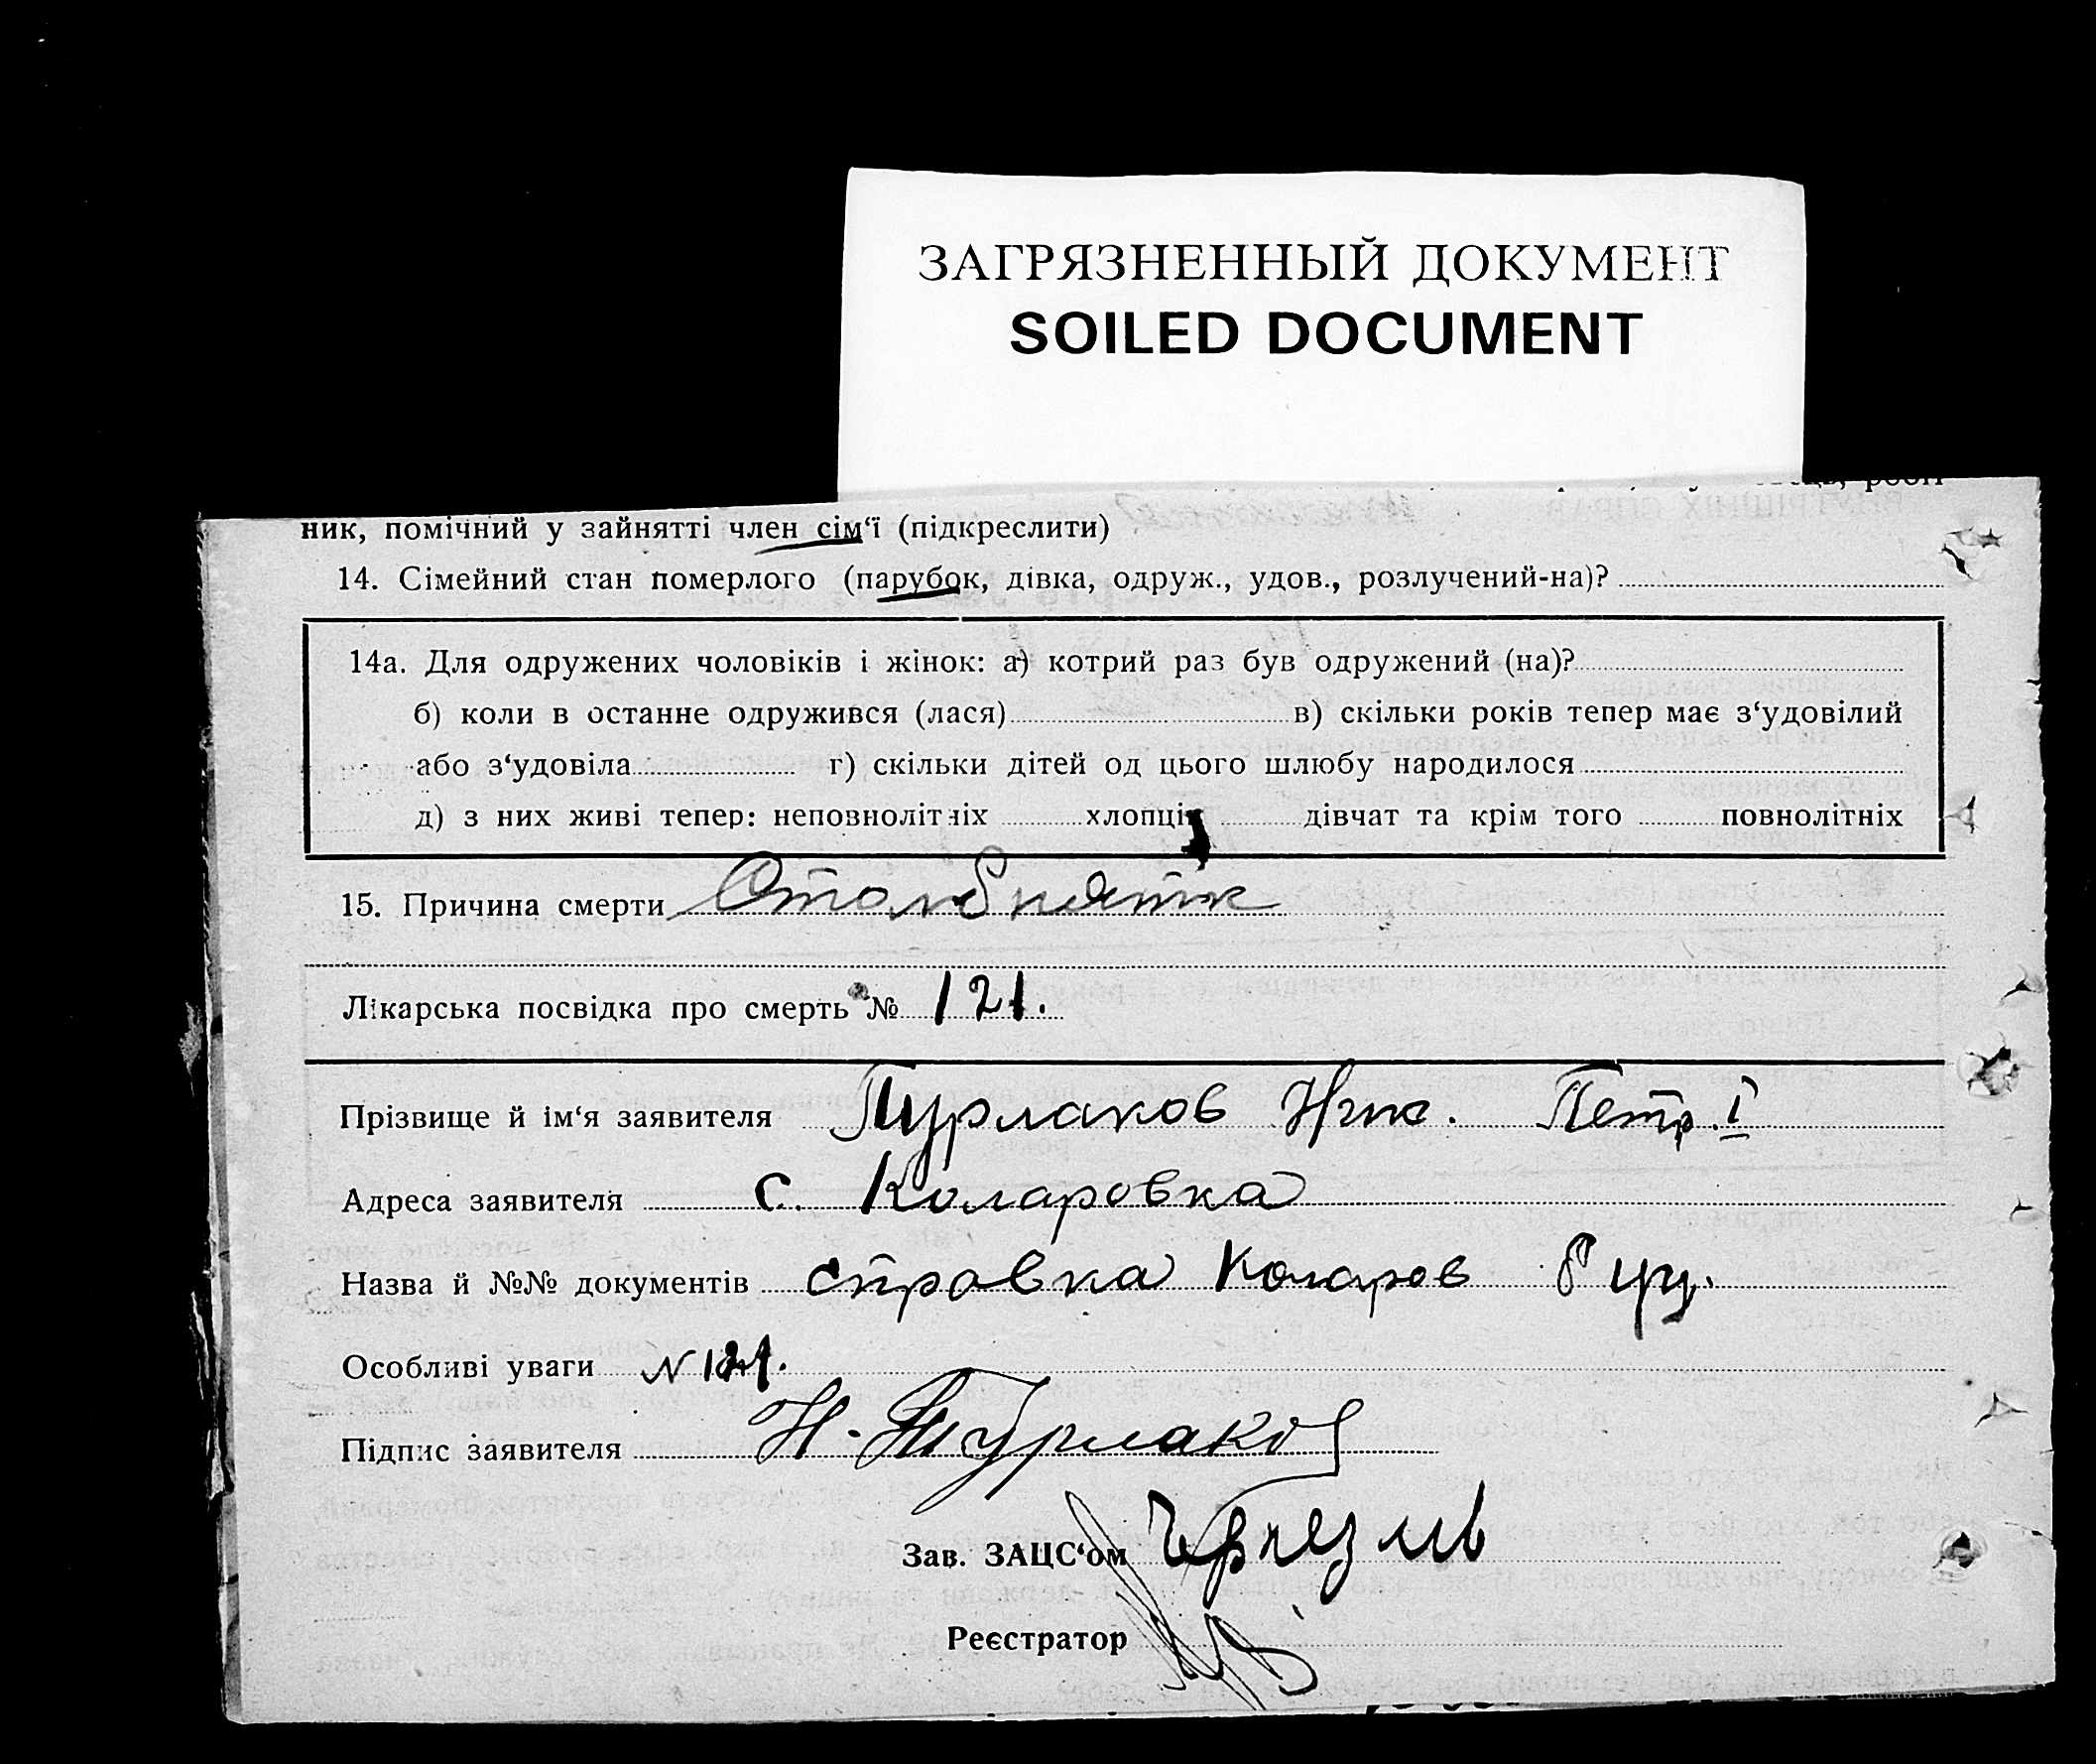 ЗАГРЯЗНЕННЫЙ ДОКУМЕНТ
SOILED DOCUMENT
ник, помічний у зайнятті член сім‘ї (підкреслити)
14. Сімейний стан померлого (парубок, дівка, одруж., удов., розлучений-на)?
14а. Для одружених чоловіків і жінок: а) котрий раз був одружений (на)?
б) коли в останне одружився (лася) в) скільки років тепер має з‘удовілий
або з‘удовіла г) скільки дітей од цього шлюбу народилося
д) з них живі тепер: неповнолітніх хлопців дівчат та крім того повнолітніх
15. Причина смерти Столбняк
Лікарська посвідка про смерть № 121.
Прізвище й ім‘я заявителя Турлаков Ник. Петр. I
Адреса заявителя с. Коларовка
Назва й №№ документів справка Коларов
Особливі уваги N 121.
Підпис заявителя Н. Турлаков
Зав. ЗАЦС‘ом
Реєстратор